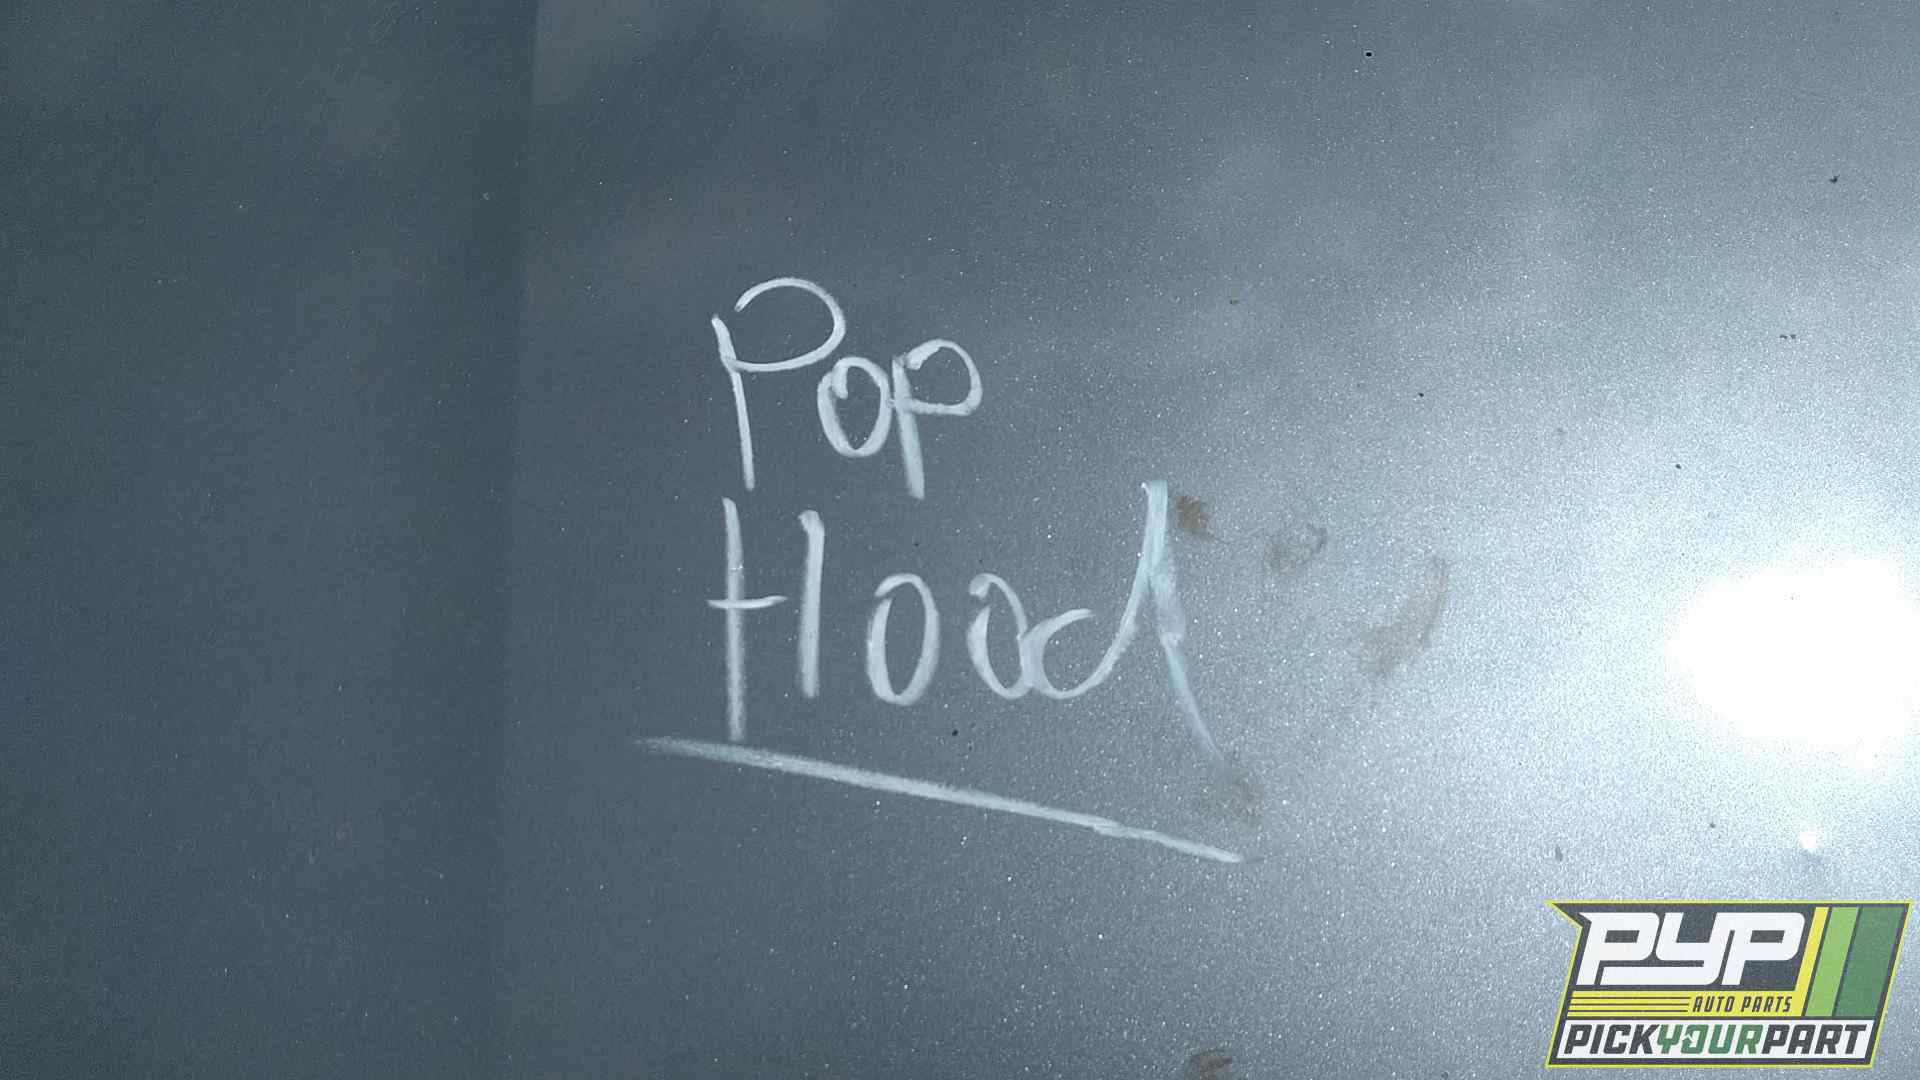 Pop
Hood
PYP
AUTO PARTS
PICKYOURPART